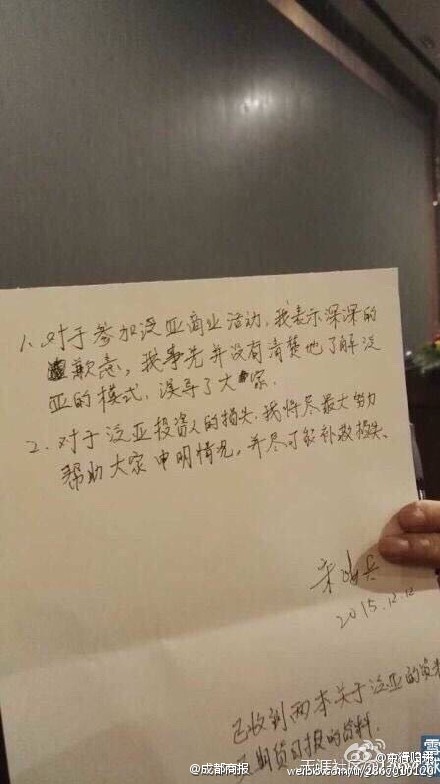 1. 对于参加泛亚商业活动，我表示深深的
歉意，我事先并没有清楚地了解泛
亚的模式，误导了大家.
2. 对于泛亚投资人的损失，我将尽最大努力
帮助大家申明情况，并尽可能补救损失、
宋鸿兵
2015.12.12
已收到两本关于泛亚的资料
期货日报的资料.
@成都商报
天涯社区
weibo.com/